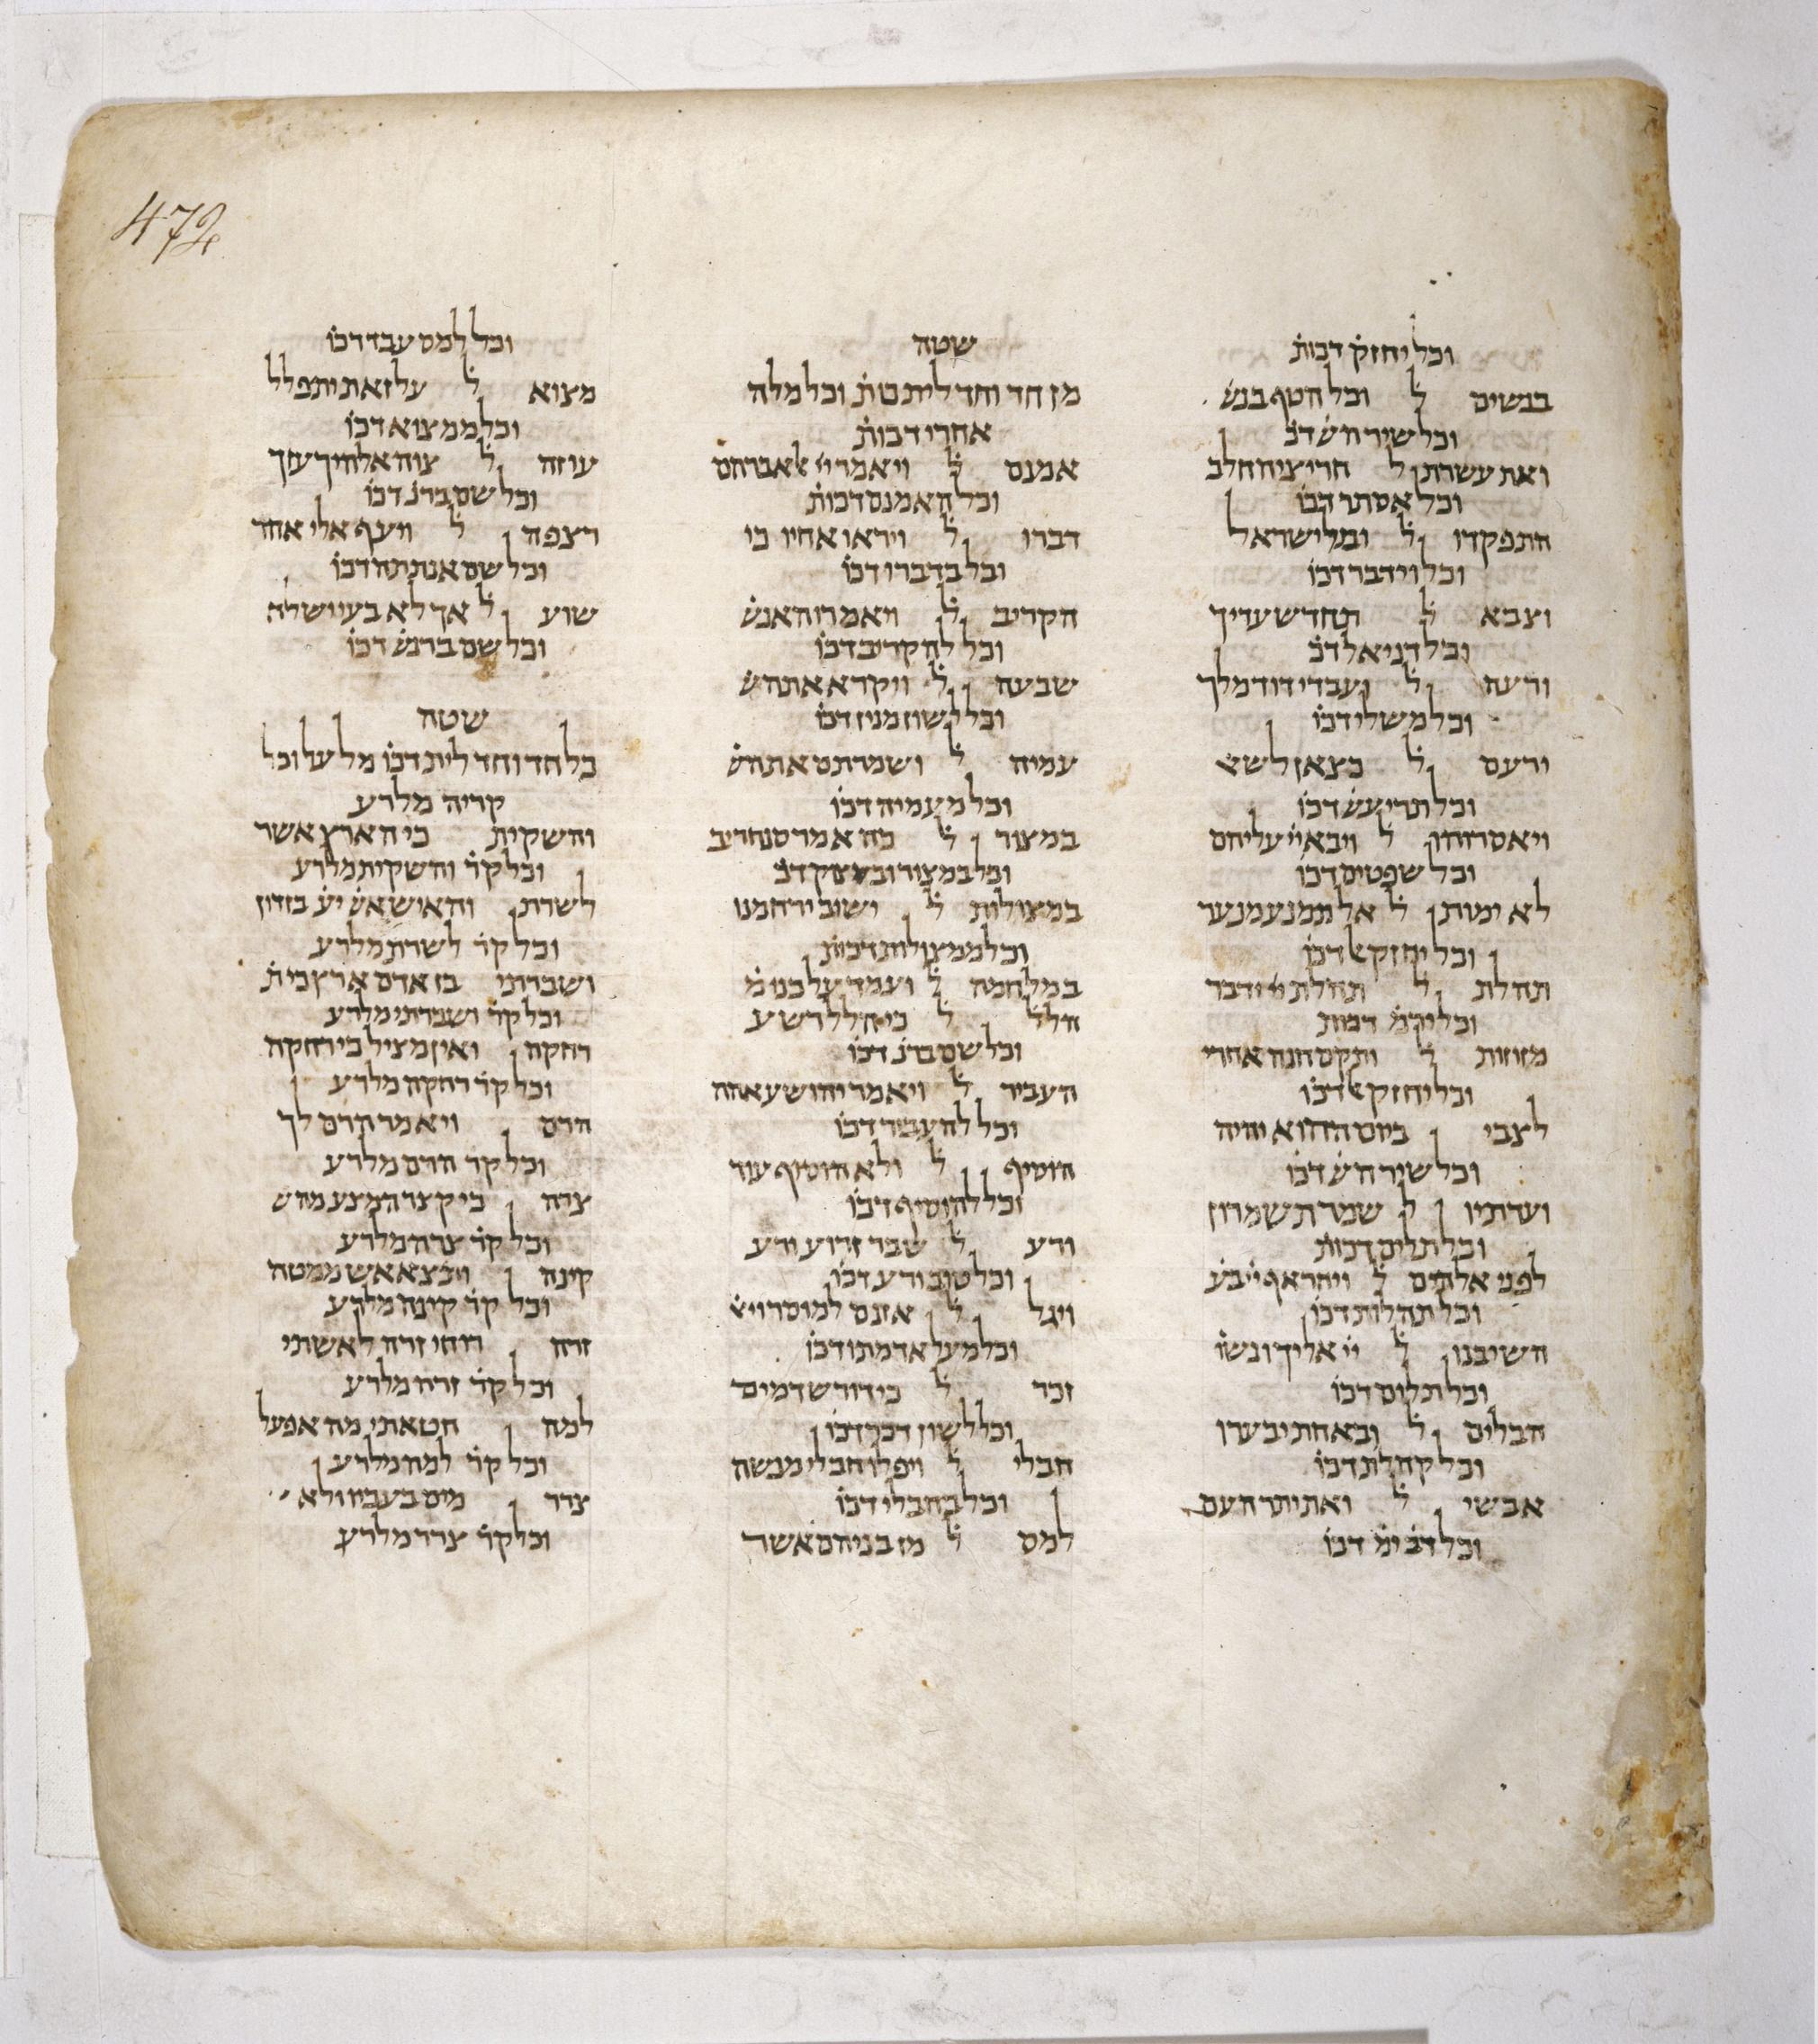 472
וכל יחזק דכות
בנשים ל וכל הטף בנש
וכל שיר הש דכ
ואת עשרת ל חריצי החלב
וכל אסתר דכו
התפקדו ל ובני ישראל
וכל וידבר דכו
וצבא ל תחדש עדיך
וכל דניאל דכ
ורעה ל ועבדי דוד מלך
וכל משלי דכו
ירעם ל כצאן לשא
וכל תרי עש דכו
ויאסרוהו ל ויבא יי עליהם
וכל שפטים דכו
לא ימות ל אל תמנע מנער
וכל יחזק דכו
תהלת ל תהלת יי ידבר
וכל דכות
מזוזות ל ותקם חנה אחרי
וכל יחזק דכו
לצבי ביום ההוא יהיה
וכל שיר הש דכו
ועדתיו ל שמרת שמרון
וכל תלים דכות
לפני אלהים ל ויחר אף
וכל תהלות דכו
השיבנו ל יי אליך ונשו
וכל תלים דכו
הבלים ל ובאחת יבערו
וכל קהלת דכו
אבשי ל ואת יתר העם
וכל דב ימ דכו
שטה
מן חד וחד לית כות וכל מלה
אחרי דכות
אמנם ל ויאמר יי לאברהם
וכל האמנם דכות
דברו ל ויראו אחיו כי
וכל בדברו דכו
הקריב ל ויאמרו האנש
וכל להקריב דכו
שבעה ל ויקרא אתה ש
וכל לשון מנין דכו
עמיה ל ושמרתם את הש
וכל מעמיה דכו
במצור ל כה אמר סנחריב
וכל במצור ובמצוק דכ
במצולות ל ישוב ירחמנו
וכל ממצולות דכות
במלחמה ל ועמד על כנו מ
הלל ל כי הלל רשע
וכל שם ברנ דכו
העביר ל ויאמר יהושע אהה
וכל להעביר דכו
הוסיף ל ולא הוסיף עוד
וכל להוסיף דכו
ורע ל שבר זרוע ורע
וכל טוב ורע דכו
ויגל ל אזנם למוסר ויא
וכל מעל אדמתו דכו
זכר ל כי דורש דמים
וכל לשון דכר דכו
חבלי ל ויפלו חבלי מנשה
וכל בחבלי דכו
למס ל מן בניהם אשר
וכל למס עבד דכו
מצוא ל על זאת יתפלל
וכל ממצוא דכו
עוזה ל צוה אלהיך עזך
וכל שם ברנ דכו
רצפה ל ויעף אלי אחד
וכל שם אנתתה דכו
שוע ל אך לא בעי ושלח
וכל שם ברנש דכו
שטה
כל חד וחד לית דכו מל על וכל
קריה מלרע
והשקית כי הארץ אשר
וכל קר והשקית מלרע
לשרת והאיש אש יע בזדון
וכל קר לשרת מלרע
ושברתי בז אדם ארץ בית
וכל קר ושברתי מלרע
רחקה ואין מציל כי רחקה
וכל קר רחקה מלרע
הרם ויאמר הרם לך
וכל קר הרם מלרע
צרה כי קצר המצע מהש
וכל קר צרה מלרע
קינה ותצא אש ממטה
וכל קר קינה מלרע
זרה רוחי זרה לאשתי
וכל קר זרה מלרע
למה חטאתי מה אפעל
וכל קר למה מלרע
צרר מים בעביו ולא
וכל קר צרר מלרע